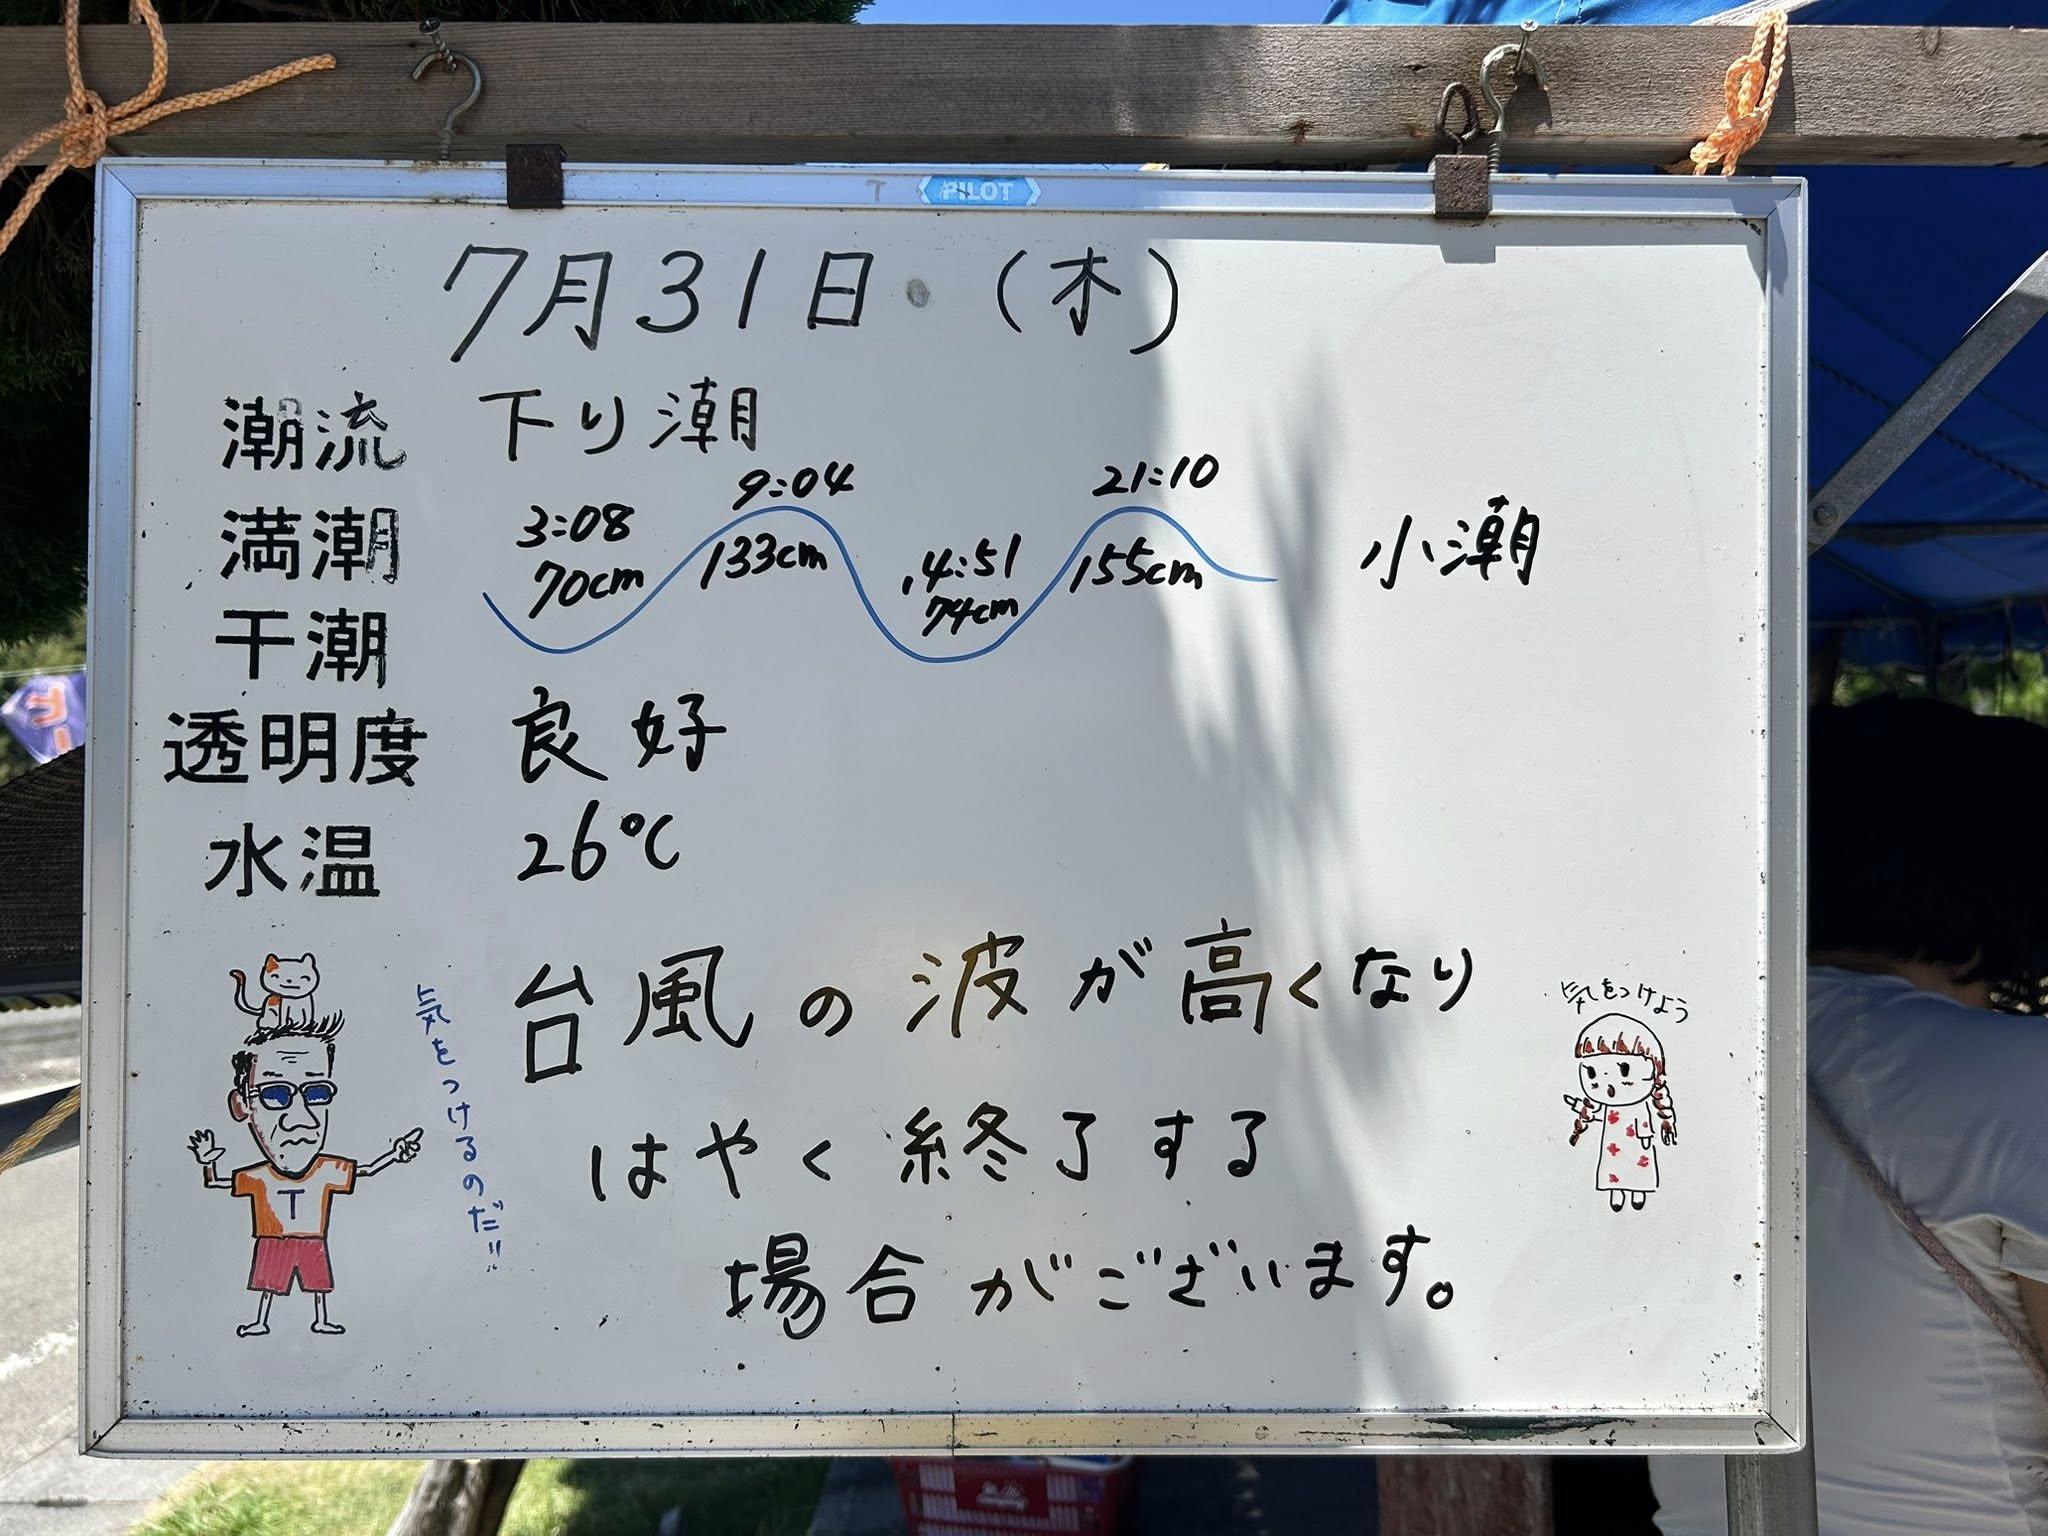 PILOT
7月31日 (木)
潮流 下り潮
満潮
干潮
3:08
70cm
9:04
133cm
14:51
74cm
21:10
155cm
小潮
透明度 良好
水温 26℃
台風の波が高くなり
はやく終了する
場合がございます。
気をつけるのだ!!
T
気をつけよう